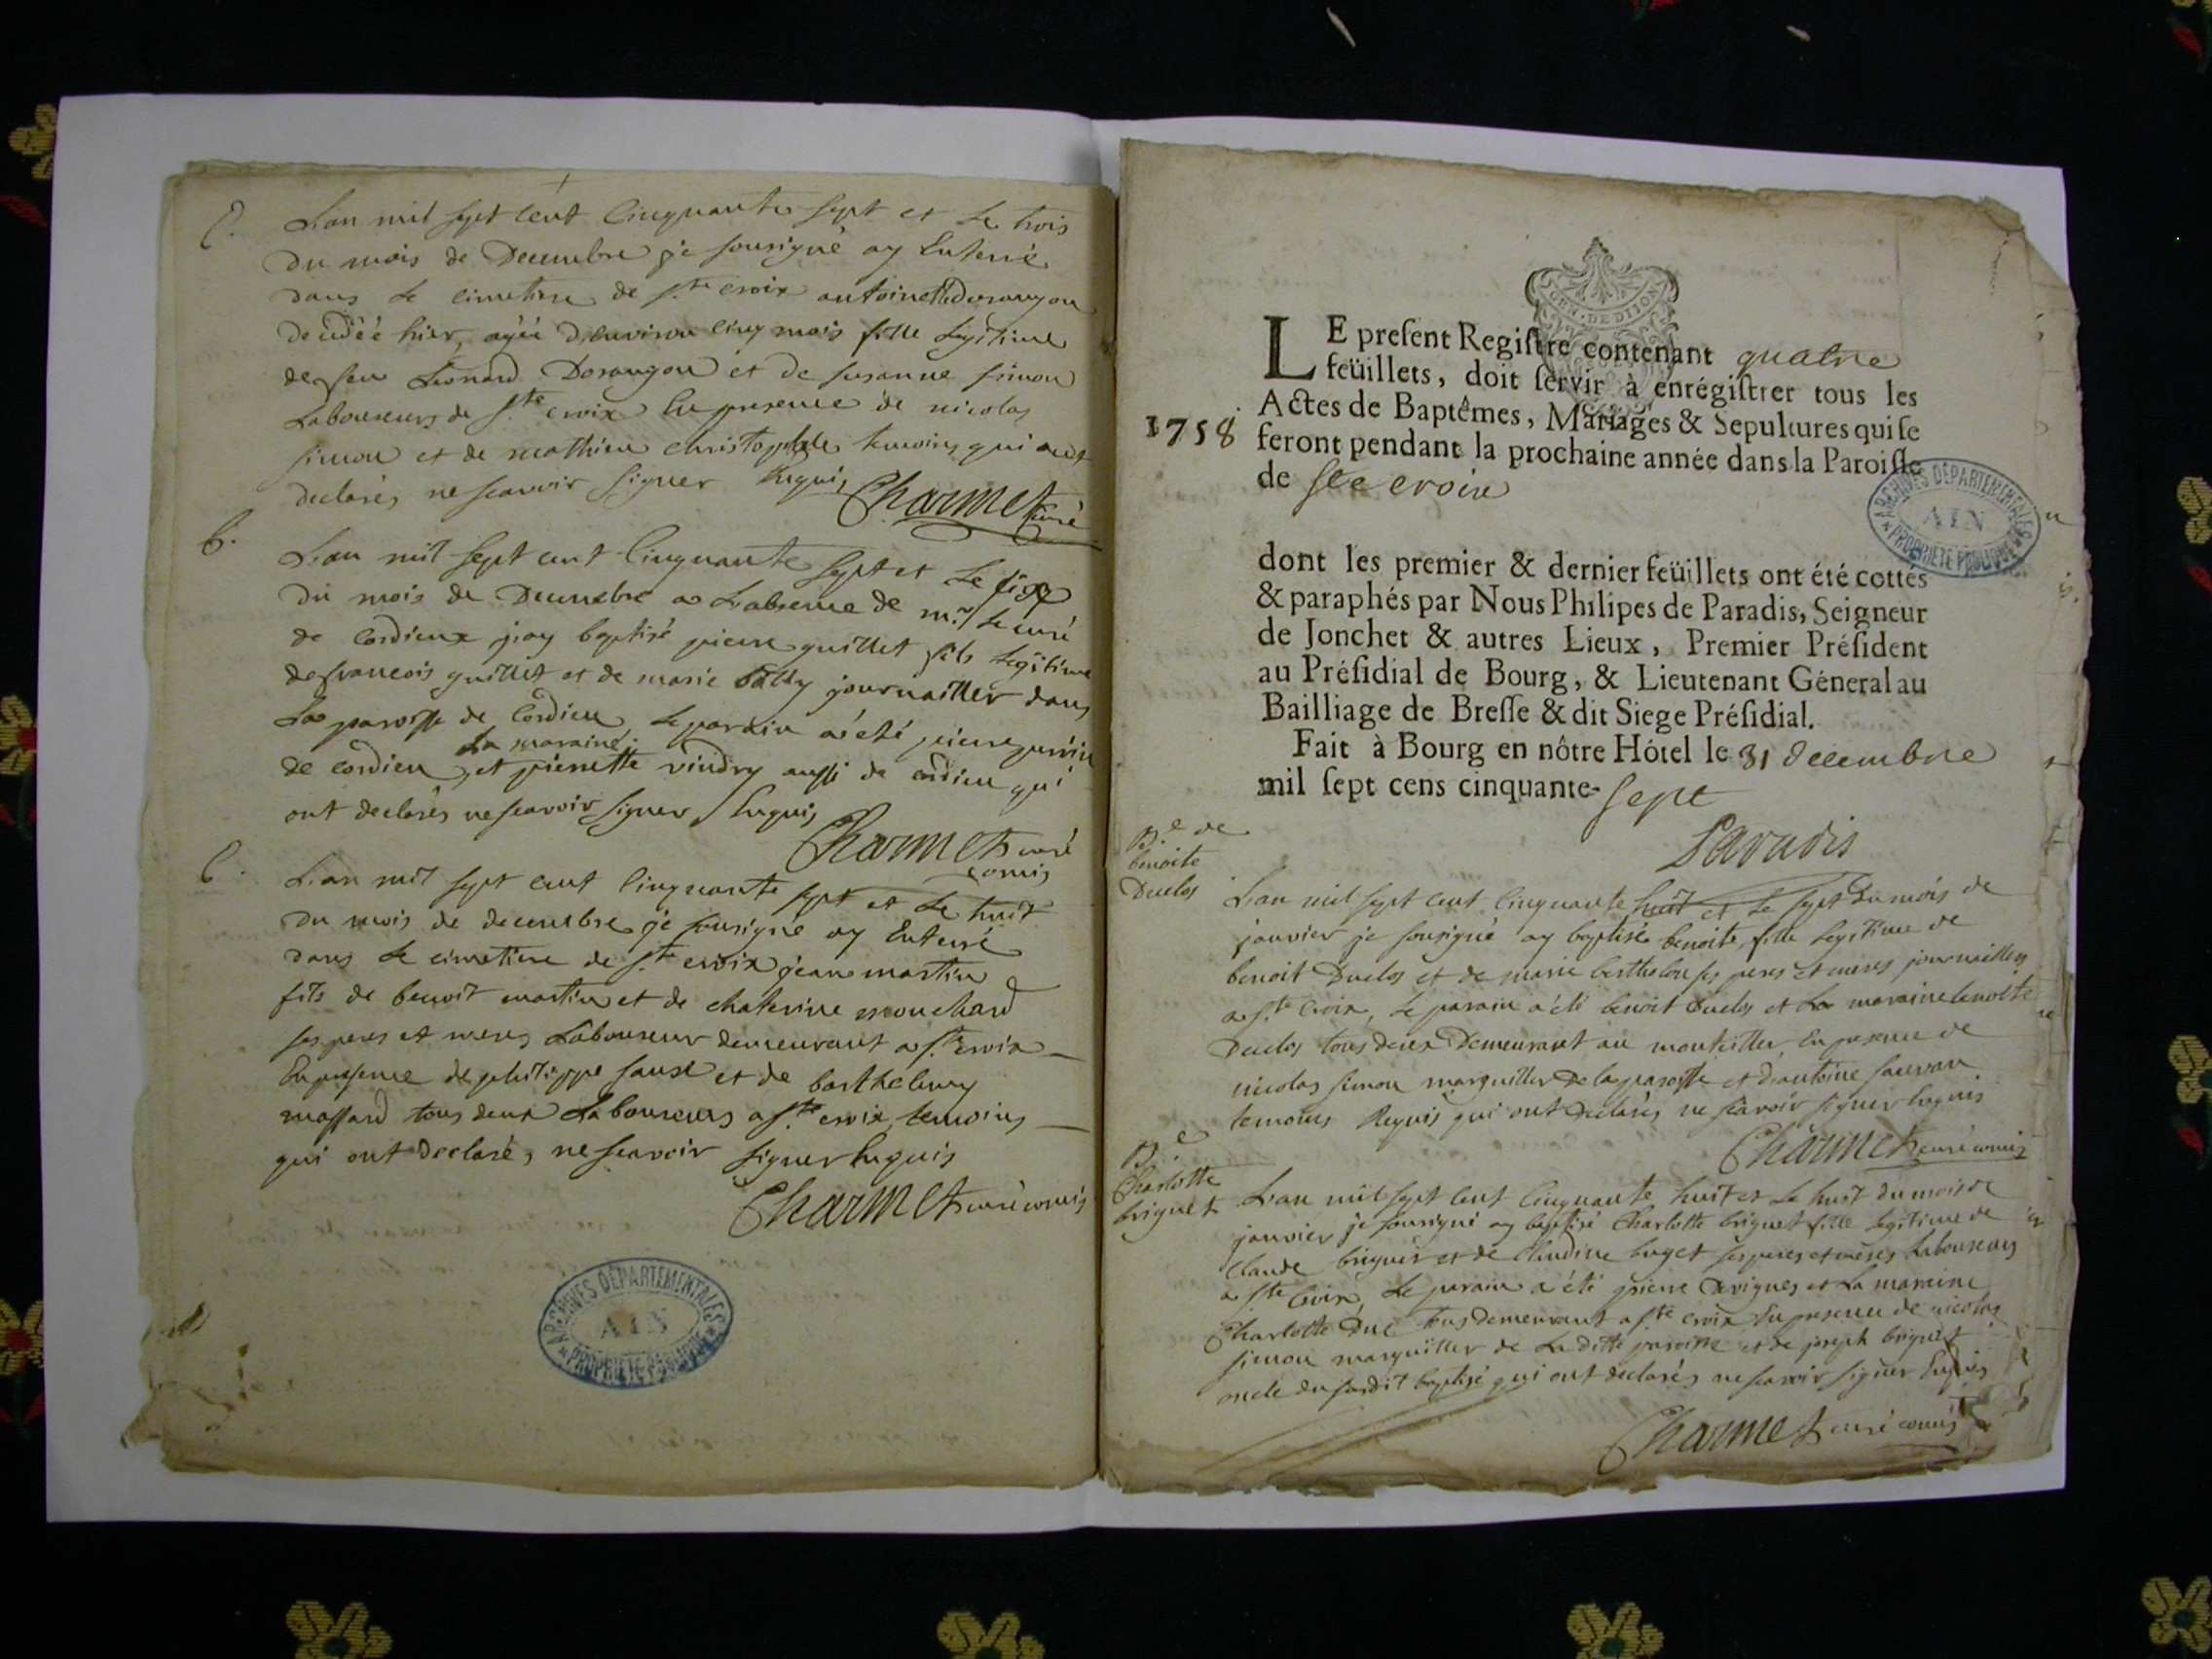 L'an mil sept cent cinquante sept et le trois
du mois de Decembre je sousigné ay enterré
dans le cimetiere de ste croix antoinette dorangon
decedée hier, agée d'environ cinq mois fille legitime
de feu Leonard Dorangon et de susanne simon
Laboureurs de ste croix en presence de nicolas
simon et de mathieu christophle temoins qui ont
declarés ne scavoir signer requis Charmet curé
B.
L'an mil sept cent cinquante sept et le
du mois de Decembre a L'absence de mr. le curé
de Cordieux j'ay baptisé pierre guillet fils legitime
de francois guillet et de marie journallier dans
La paroisse de Cordieu le parain a été pierre perrin
de cordieu, et La maraine pierrette vindry aussi de cordieu qui
ont declarés ne scavoir signer enquis
Charmet curé
comis
L'an mil sept cent cinquante sept et le huit
du mois de decembre je sousigné ay enterré
dans le cimetiere de ste croix jean martin
fils de benoit martin et de chaterine mouchard
ses peres et meres Laboureur demeurant a ste croix
En presence de philippe et de barthelemy
massard tous deux Laboureurs a ste croix temoins
qui ont declarés ne scavoir signer enquis
Charmet curé comis
ARCHIVES DEPARTEMENTALES
AIN
PROPRIETE PUBLIQUE
GEN. DE DIJON
LE present Registre contenant quatre
feüillets, doit servir à enrégistrer tous les
Actes de Baptêmes, Mariages & Sepultures qui se
1758 feront pendant la prochaine année dans la Paroisse
de Ste croix
ARCHIVES DEPARTEMENTALES
AIN
PROPRIETE PUBLIQUE
dont les premier & dernier feüillets ont été cottés
& paraphés par Nous Philipes de Paradis, Seigneur
de Jonchet & autres Lieux, Premier Président
au Présidial de Bourg, & Lieutenant Géneral au
Bailliage de Bresse & dit Siege Présidial.
Fait à Bourg en nôtre Hôtel le 31 decembre
mil sept cens cinquante-sept
Paradis
B.e de
benoite
Duclos
L'an mil sept cent cinquante huit et le sept du mois de
janvier je sousigné ay baptisé benoite fille legitime de
benoit Duclos et de marie berthelon ses peres et meres journaillers
a ste Croix, le parain a été benoit Duclos et La maraine benoite
Duclos tous deux Demeurant au monteiller, En presence de
nicolas simon marguiller de la paroisse et d'antoine
temoins Requis qui ont declarés ne scavoir signer enquis
Charmet curé comis
B.e
Charlotte
briguet
L'an mil sept cent cinquante huit et le huit du mois de
janvier je sousigné ay baptisé Charlotte briguet fille legitime de
Claude briguet et de Claudine buget ses peres et meres Laboureurs
a ste Croix, Le parain a été pierre Davignes et La maraine
Charlotte Duc tous demeurant a ste croix En presence de nicolas
simon marguiller de La ditte paroisse et de joseph briguet
oncle du susdit baptisé qui ont declarés ne scavoir signer Enquis
Charmet curé comis